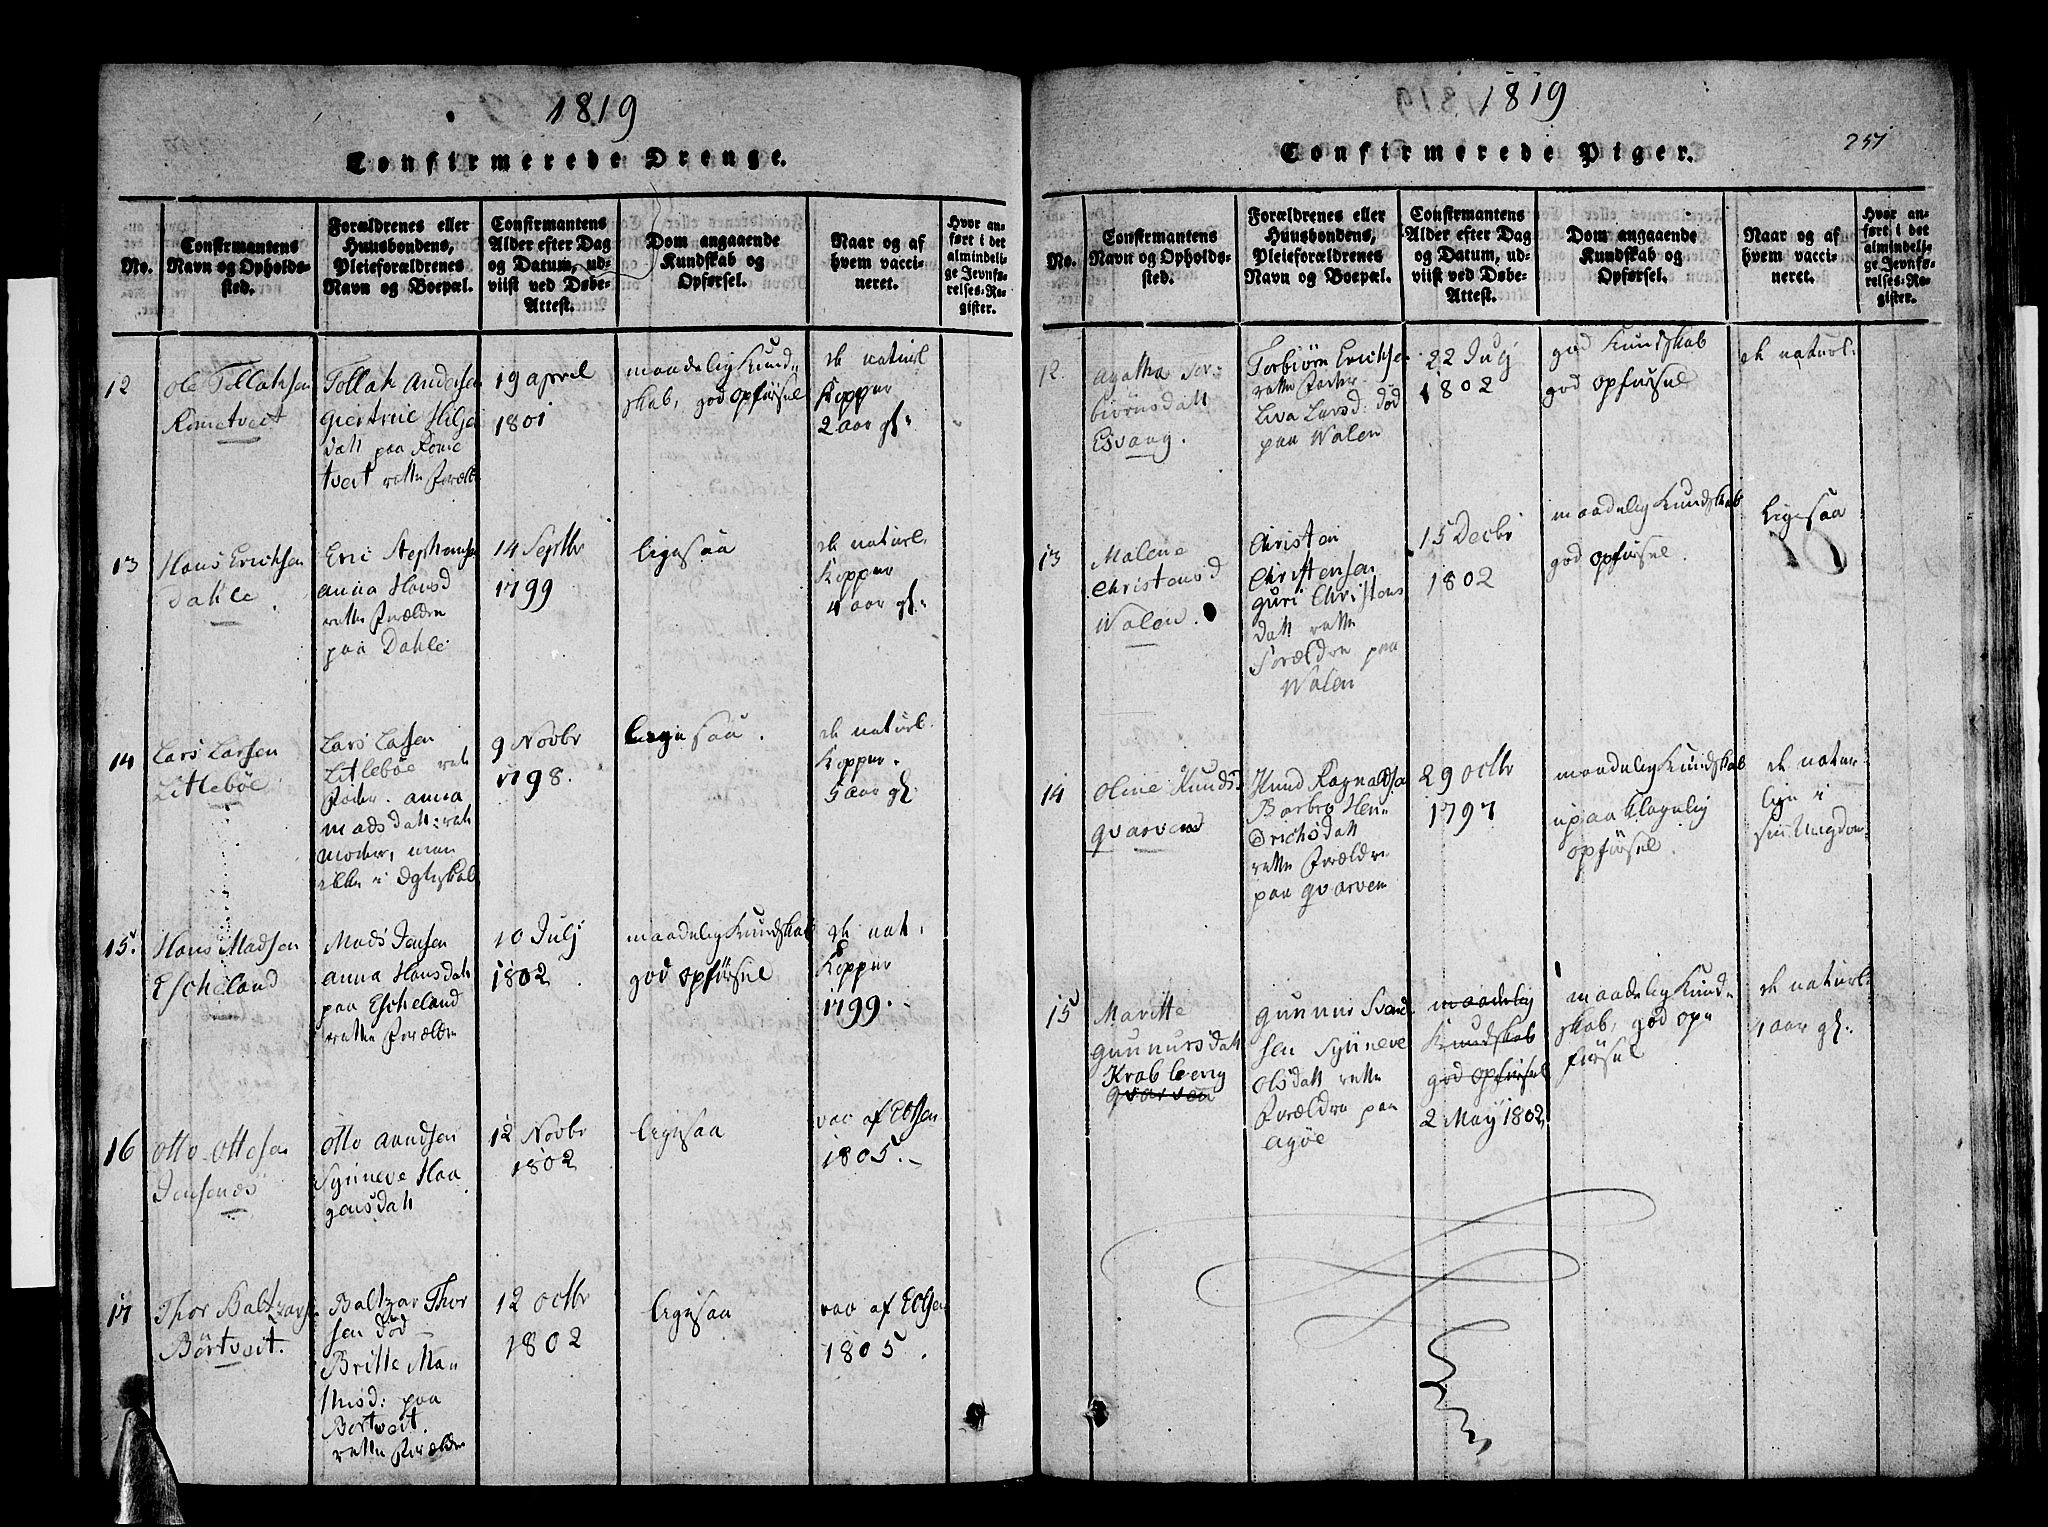 1819
Confirmerede Drenge.
No.
Confirmantens
Navn og Opholds-
sted.
Forældrenes eller
Huusbondens,
Pleieforældrenes
Navn og Boepæl.
Confirmantens
Alder efter Dag
og Datum, ud-
viist ved Døbe-
Attest.
Dom angaaende
Kundskab og
Opførsel.
Naar og af
hvem vacci-
neret.
Hvor an-
ført i det
almindeli-
ge Jevnfø-
relses-Re-
gister.
12
Ole Tollaksen
Rometveit
Tollak Andersen
giertrue Hilje
datt paa Rome
tveit rette Foræld
19 april
1801
maadelig Kund-
skab, god opførsel
de naturl
Kopper
2 aar gl:
13
Hans Ericksen
Dahle
Eric Stephansen
anna Hansd
rette Forældre
paa Dahle
14 Septbr
1799
ligesaa
de naturl.
Kopper
4 aar gl:
14
Lars Larsen
Litlebøe
Lars Larsen
Litlebøe rett
Fader. anna
mads datt: rett
moder, men
ikke i Egteskab
9 Novbr
1798.
ligesaa.
de naturl.
Kopper.
5 aar gl.
15.
Hans Madsen
Escheland
Mads Jensen
anna Hansdatt
paa Escheland
rette Forældre
10 Julj
1802
maadelig Kundskab
god opførsel
de nat.
Kopper
1799.
16
Otto Ottesen
Jensenæs
Otto Amdsen
Synneve Haa
gensdatt
12 Novbr
1802
ligesaa
vac af Ellsen
1805.
17
Thor Baltzarsen
Børtveit.
Baltzar Thor
sen død
Britte Ma-
thisd: paa
Bortveit.
rette Forældre
12 octbr
1802
ligesaa
vac af Ellsen
1805.
1819
251
Confirmerede Piger.
No.
Confirmantens
Navn og Opholds-
sted.
Forældrenes eller
Huusbondens,
Pleieforældrenes
Navn og Boepæl.
Confirmantens
Alder efter Dag
og Datum, ud-
viist ved Døbe-
Attest.
Dom angaaende
Kundskab og
Opførsel.
Naar og af
hvem vacci-
neret.
Hvor an-
ført i det
almindeli-
ge Jevnfø-
relses-Re-
gister.
12.
Agatha Tor-
biörnsdatt
Esvang.
Torbiørn Ericksen
rette Fader
Liva Larsd: død
paa Walen
22 Julj
1802
god Kundskab
god opførsel
de naturl.
13
Malene
Christensd
Walen.
Christen
Christensen
guri Christens
datt rette
Forældre paa
Walen
15 Decbr
1802
maadelig Kundskab
god opførsel.
ligesaa
14
Oline Knudsd
gvarven
Knud Ragnaldsen
Barbro Hen-
drichsdatt
rette Forældre
paa gvarven
29 octbr
1797
maadelig Kundskab
upaaklagelig
opførsel.
de natur-
lige i
sin Ungdom
15
Maritte
gunnersdatt
Krabberg
gvarven
gunner Svend
sen Synneve
Olsdatt rette
Forældre paa
agøe
maadelig
Kundskab
god opførsel
2 May 1802.
maadelig Kund-
skab, god op-
førsel
de naturl.
4 aar gl.